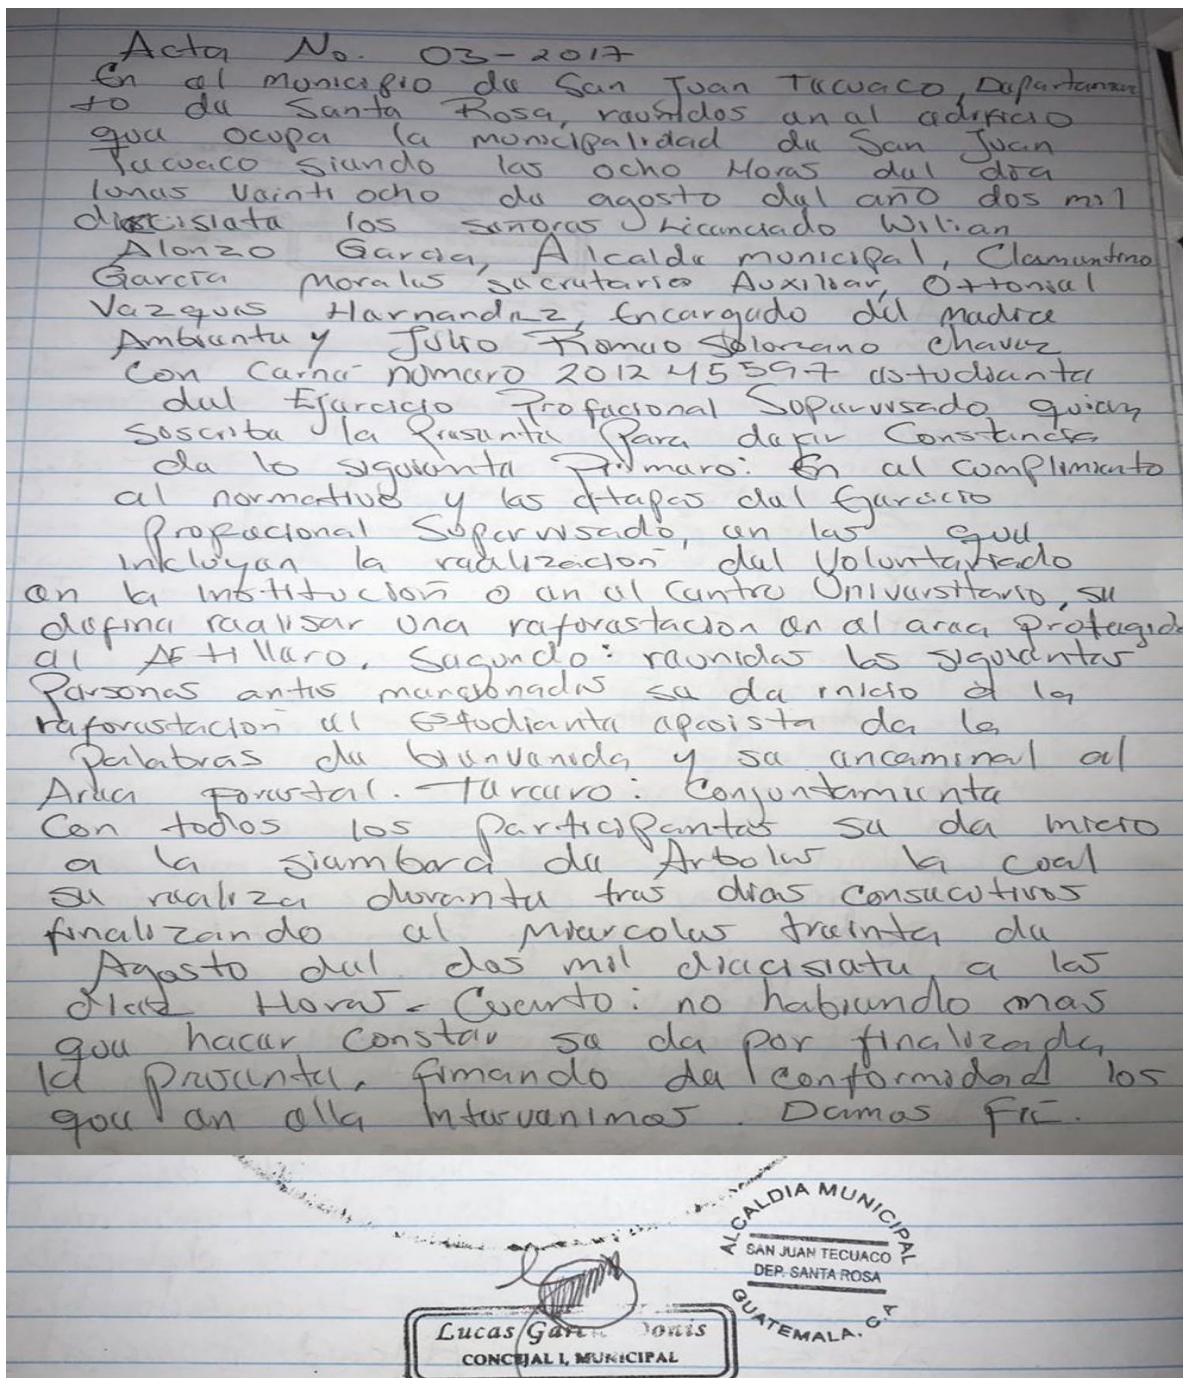 Acta No. 03-2017
En el municipio de San Juan Tecuaco, Departamen
to de Santa Rosa, reunidos en el edificio
que ocupa la municipalidad de San Juan
Tecuaco siendo las ocho Horas del día
lunes veinti ocho de agosto del año dos mil
diecisiete los señores Licenciado Wilian
Alonzo Garcia, Alcalde municipal, Clementino
García Morales secretario Auxiliar, Ottoniel
Vazques Hernandez, Encargado del medice
Ambiente y Julio Romeo Solorzano Chavez
Con Carné numero 201245597 estudiante
del Ejercicio Profecional Supervisado quien
suscribe la Presente Para dejar Constancia
de lo siguiente Primero: En el cumplimiento
al normativo y las etapas del Ejercicio
Profecional Supervisado, en las que
incluyen la realización del Voluntariado
en la institución o en el Centro Universitario, se
define realisar una reforestacion en el area Protegida
el Astillero. Segundo: reunidas las siguientes
Personas antes mencionadas se da inicio a la
reforestación el Estudiante epesista da la
Palabras de bienvenida y se encaminal al
Area Forestal. Tercero: Conjuntamente
Con todos los Participantes se da inicio
a la siembara de Arboles la coal
se realiza durante tres dias consecutivos
finalizando el Miercoles treinta de
Agosto del dos mil diecisiete, a las
diez Horas. Cuarto: no habiendo mas
que hacer Constar se da por finalizada
la presente, fimando de conformidad los
que en ella intervenimos. Damos fé.
ALCALDIA MUNICIPAL
SAN JUAN TECUACO
DEP. SANTA ROSA
GUATEMALA. C.A.
Lucas Donis
CONCEJAL I, MUNICIPAL